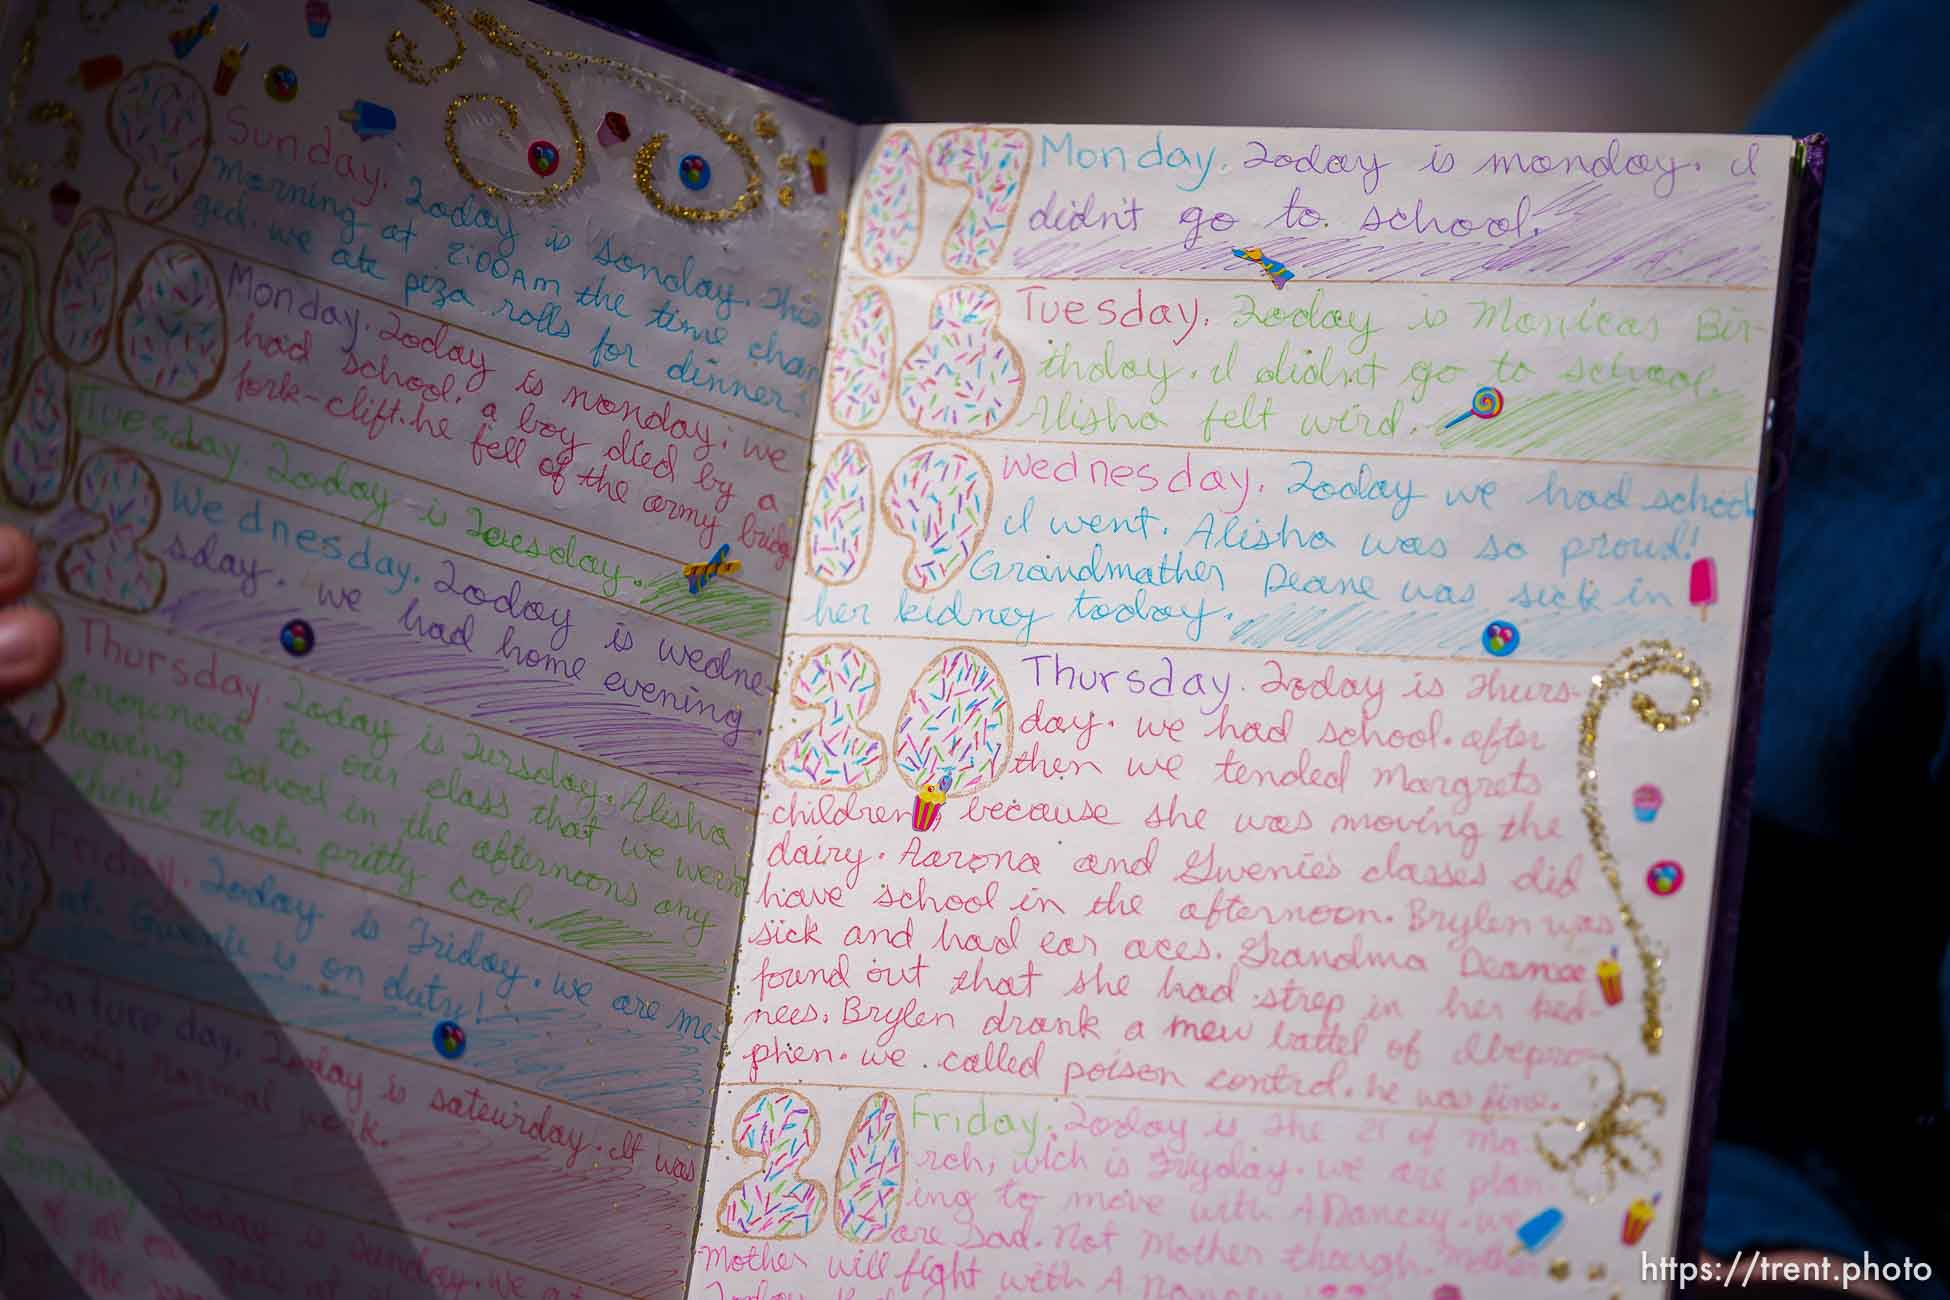 9 Sunday. Today is sonday. This
morning at 2:00AM the time chan
ged. we ate pizza rolls for dinner!
10 Monday. Today is monday. we
had school. a boy died by a
fork-clift. he fell of the army bridg
Tuesday. Today is Tuesday.
12 Wednesday. Today is wedne-
sday. we had home evening.
Thursday. Today is Tursday. Alisha
anounced to our class that we weren't
having school in the afternoons any
think thats pritty cool.
Friday. Today is Friday. we are me-
at. Gwenie is on duty!
Sature day. Today is sateurday. It was
normal work.
Sunday. Today is sunday. we
17 Monday. Today is monday. I
didn't go to school.
18 Tuesday. Today is Monicas Bir-
thday. I didn't go to school.
Alisha felt wird.
19 wednesday. Today we had school
I went. Alisha was so proud!
Grandmather Deane was sick in
her kidney today.
20 Thursday. Today is Thurs-
day. we had school. after
then we tended margrets
children, because she was moving the
dairy. Aarona and Gwenie's classes did
have school in the afternoon. Brylen was
sick and had ear aces. Grandma Deanee
found out that she had strep in her kid-
nees. Brylen drank a mew battel of Ibepro-
phen. we called poison control. he was fine.
21 Friday. Today is the 21 of ma-
rch, wich is Fryday. we are plan-
ing to move with A Dancey. we
are sad. Not Mother though. Mother
Mother will fight with A Dancey
https://trent.photo